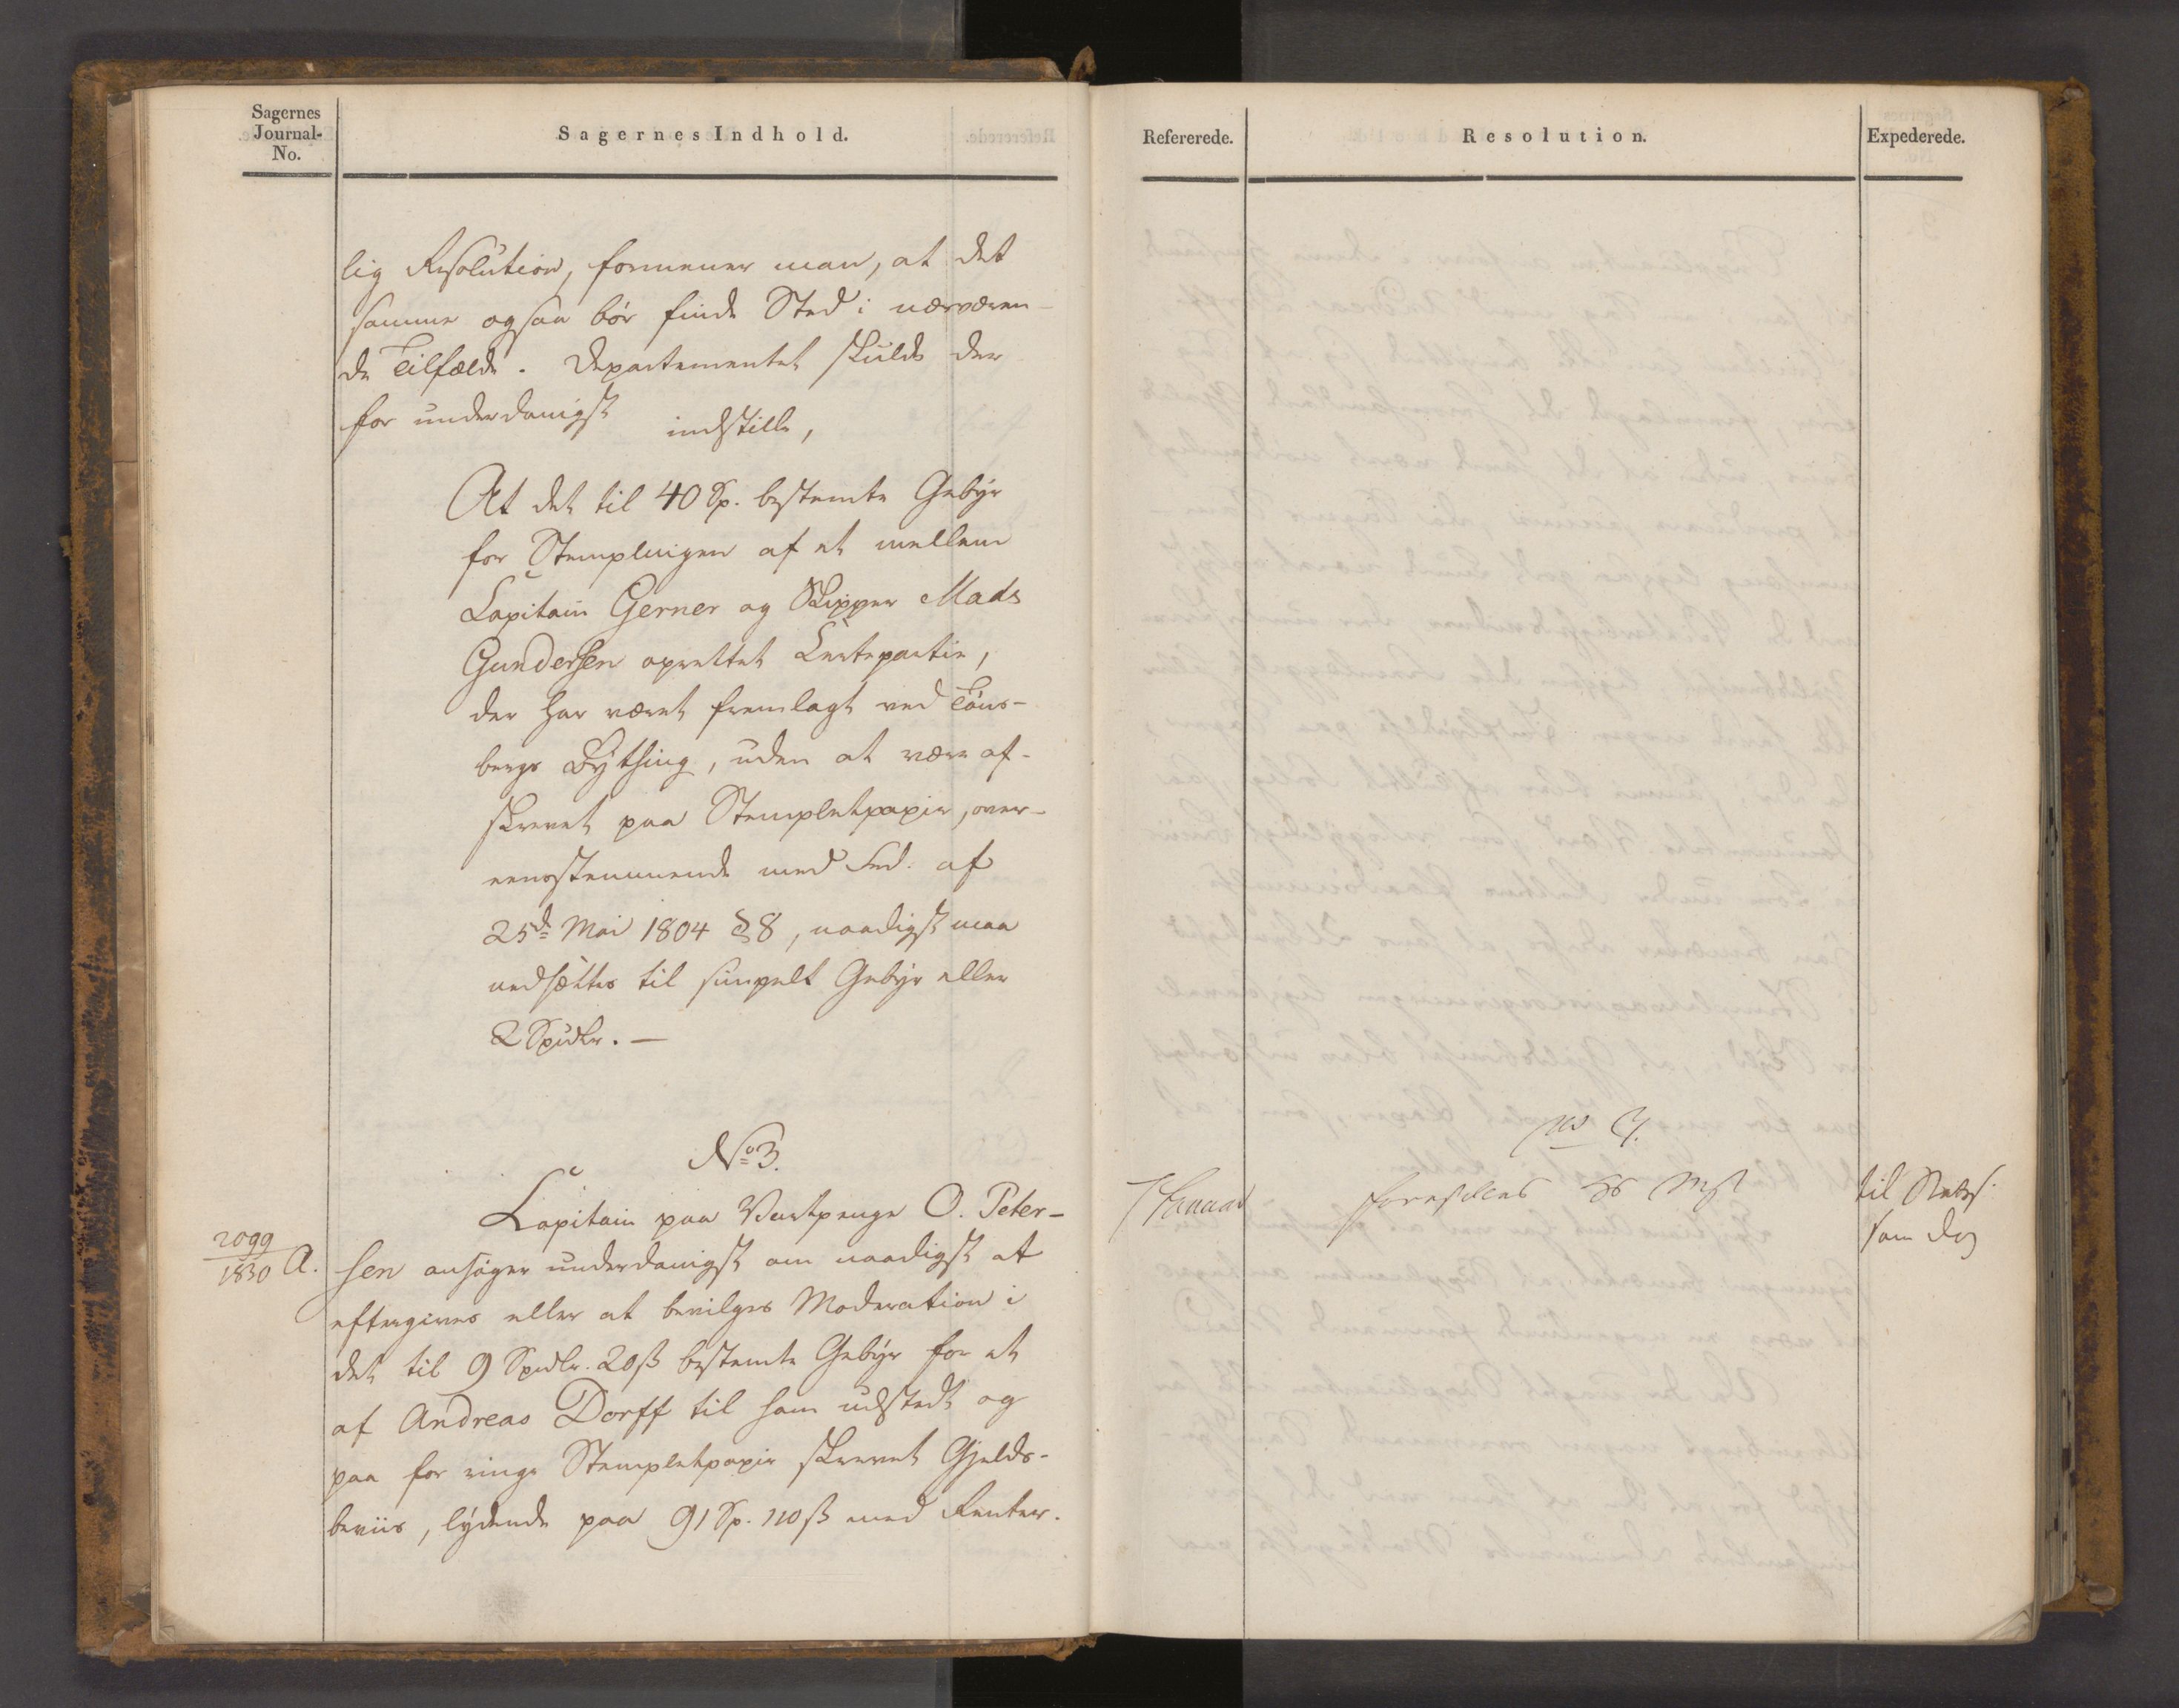 Sagernes
Journal-
No.
Sagernes Indhold.
lig Resolution, formener man, at det
samme ogsaa bør finde Sted i nærværen-
de Tilfælde. Departementet skulde der
for underdanigst indstille,
At det til 40 Sp. bestemte Gebyr
for Stemplingen af et mellem
Capitain Gerner og Skipper Mads
Gundersen oprettet Certepartie,
der har været fremlagt ved Töns-
bergs Bything, uden at være af-
skrevet paa Stempletpapir, over-
eensstemmende med Frd. af
25de Mai 1804 § 8, naadigst maa
nedsættes til simpelt Gebyr eller
2 Spdlr. —
No 3.
2099
1830 A.
Capitain paa Vartpenge O. Peter-
sen ansøger underdanigst om naadigst at
eftergives eller at bevilges Moderation i
det til 9 Spdlr. 20 ß bestemte Gebyr for et
af Andreas Dorff til ham udstedt og
paa for ringe Stempletpapir skrevet Gjelds-
beviis, lydende paa 91 Sp. 110 ß med Renter.
Refererede.
Resolution.
Expederede.
No 3.
7 Januar
forestilles Hs Mst
til Statss.
sam Dag